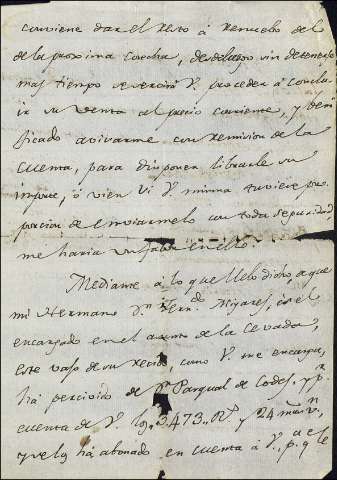 conviene dar el resto á renuebo del
de la proxima cosecha, desde luego sin detenerse
mas tiempo se servirá V. proceder á conclu
ir su venta al precio corriente, y veri
ficado avisarme con remision de la
Cuenta, para disponer librarle su
importe, ó vien si V. misma tuviese pro
porcion de enviarmelo con toda seguridad
me haria un favor en ello.
Mediante á lo que llebo dicho, a que
mi Hermano Dn. Fernd.o Miyares, es el
encargado en el asunto de la Cevada,
este vaso de su recivo, como V. me encarga,
há percivido de Dn. Pasqual de Codes, y pr.
cuenta de V. los 3.473 Rs. y 24 mrs. vn.
y se los há abonado en cuenta á V., pa. qe. le